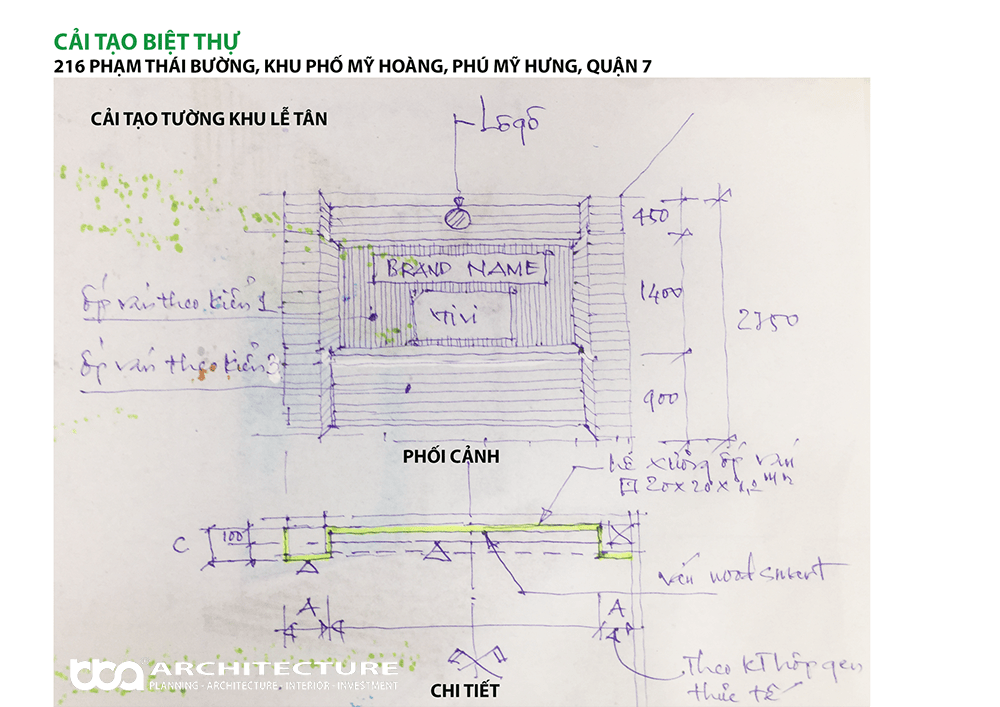 CẢI TẠO BIỆT THỰ
216 PHẠM THÁI BƯỜNG, KHU PHỐ MỸ HOÀNG, PHÚ MỸ HƯNG, QUẬN 7
CẢI TẠO TƯỜNG KHU LỄ TÂN
Lôgô
450
BRAND NAME
1400
ốp ván theo kiểu 1
TIVI
2750
ốp ván theo kiểu 3
900
PHỐI CẢNH
hệ xương ốp ván
20x20x1,2mm
C
100
ván wood
A
A
Theo KT hộp gen
thực tế
bba ARCHITECTURE
PLANNING - ARCHITECTURE, INTERIOR - INVESTMENT
CHI TIẾT